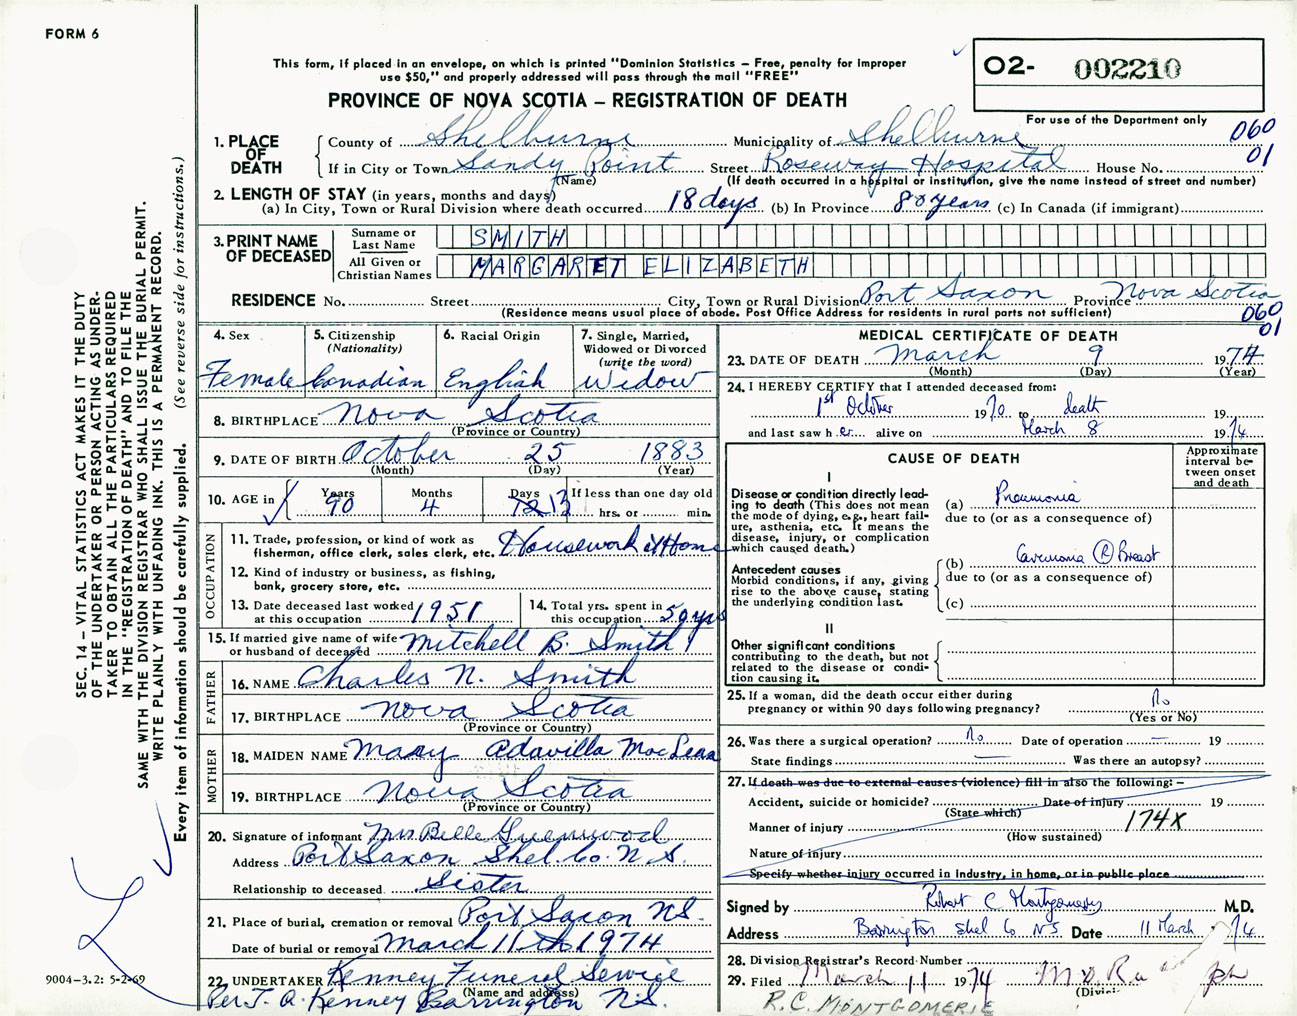 FORM 6
This form, if placed in an envelope, on which is printed "Dominion Statistics – Free, penalty for improper
use $50," and properly addressed will pass through the mail "FREE"
PROVINCE OF NOVA SCOTIA – REGISTRATION OF DEATH
02- 002210
For use of the Department only
060
01
1. PLACE OF DEATH
County of Shelburne Municipality of Shelburne
If in City or Town Sandy Point Street Roseway Hospital House No.
(Name) (If death occurred in a hospital or institution, give the name instead of street and number)
2. LENGTH OF STAY (in years, months and days)
(a) In City, Town or Rural Division where death occurred 18 days (b) In Province years (c) In Canada (if immigrant)
3. PRINT NAME OF DECEASED
Surname or Last Name SMITH
All Given or Christian Names MARGARET ELIZABETH
RESIDENCE No. Street City, Town or Rural Division Port Saxon Province Nova Scotia
(Residence means usual place of abode. Post Office Address for residents in rural parts not sufficient)
060
01
4. Sex
Female
5. Citizenship
(Nationality)
Canadian
6. Racial Origin
English
7. Single, Married,
Widowed or Divorced
(write the word)
Widow
8. BIRTHPLACE Nova Scotia
(Province or Country)
9. DATE OF BIRTH October 25 1883
(Month) (Day) (Year)
10. AGE in Years Months Days If less than one day old
90 4 12 13 hrs. or min.
OCCUPATION
11. Trade, profession, or kind of work as
fisherman, office clerk, sales clerk, etc. Housework at Home
12. Kind of industry or business, as fishing,
bank, grocery store, etc.
13. Date deceased last worked
at this occupation 1951
14. Total yrs. spent in
this occupation 50 yrs
15. If married give name of wife
or husband of deceased Mitchell B. Smith
FATHER
16. NAME Charles N. Smith
17. BIRTHPLACE Nova Scotia
(Province or Country)
MOTHER
18. MAIDEN NAME Mary Adavilla MacLean
19. BIRTHPLACE Nova Scotia
(Province or Country)
20. Signature of informant Mrs Belle Greenwood
Address Port Saxon Shel. Co. N.S.
Relationship to deceased Sister
21. Place of burial, cremation or removal Port Saxon N.S.
Date of burial or removal March 11th 1974
22. UNDERTAKER Kenney Funeral Service
(Name and address)
Per T. A. Kenney Barrington N.S.
MEDICAL CERTIFICATE OF DEATH
23. DATE OF DEATH March 9 1974
(Month) (Day) (Year)
24. I HEREBY CERTIFY that I attended deceased from:
1st October 1970 to death 19
and last saw her alive on March 8 1974
CAUSE OF DEATH
Approximate interval between onset and death
I
Disease or condition directly leading to death (This does not
mean the mode of dying, e.g., heart failure, asthenia, etc. It means the
disease, injury, or complication
which caused death.)
(a) Pneumonia
due to (or as a consequence of)
Antecedent causes
Morbid conditions, if any, giving
rise to the above cause, stating
the underlying condition last.
(b) Carcinoma (R) Breast
due to (or as a consequence of)
(c)
II
Other significant conditions
contributing to the death, but not
related to the disease or condition causing it.
25. If a woman, did the death occur either during
pregnancy or within 90 days following pregnancy? No
(Yes or No)
26. Was there a surgical operation? No Date of operation – 19
State findings – Was there an autopsy?
27. If death was due to external causes (violence) fill in also the following: –
Accident, suicide or homicide? Date of injury 19
(State which)
Manner of injury 174X
(How sustained)
Nature of injury
Specify whether injury occurred in industry, in home, or in public place
Signed by Robert C Montgomery M.D.
Address Barrington Shel Co NS Date 11 March 74
28. Division Registrar's Record Number
29. Filed March 11 1974
R.C. MONTGOMERIE
SEC. 14 – VITAL STATISTICS ACT MAKES IT THE DUTY
OF THE UNDERTAKER OR PERSON ACTING AS UNDER-
TAKER TO OBTAIN ALL THE PARTICULARS REQUIRED
IN THE "REGISTRATION OF DEATH" AND TO FILE THE
SAME WITH THE DIVISION REGISTRAR WHO SHALL ISSUE THE BURIAL PERMIT.
WRITE PLAINLY WITH UNFADING INK. THIS IS A PERMANENT RECORD.
Every item of information should be carefully supplied. (See reverse side for instructions.)
9004-3.2: 5-2-69